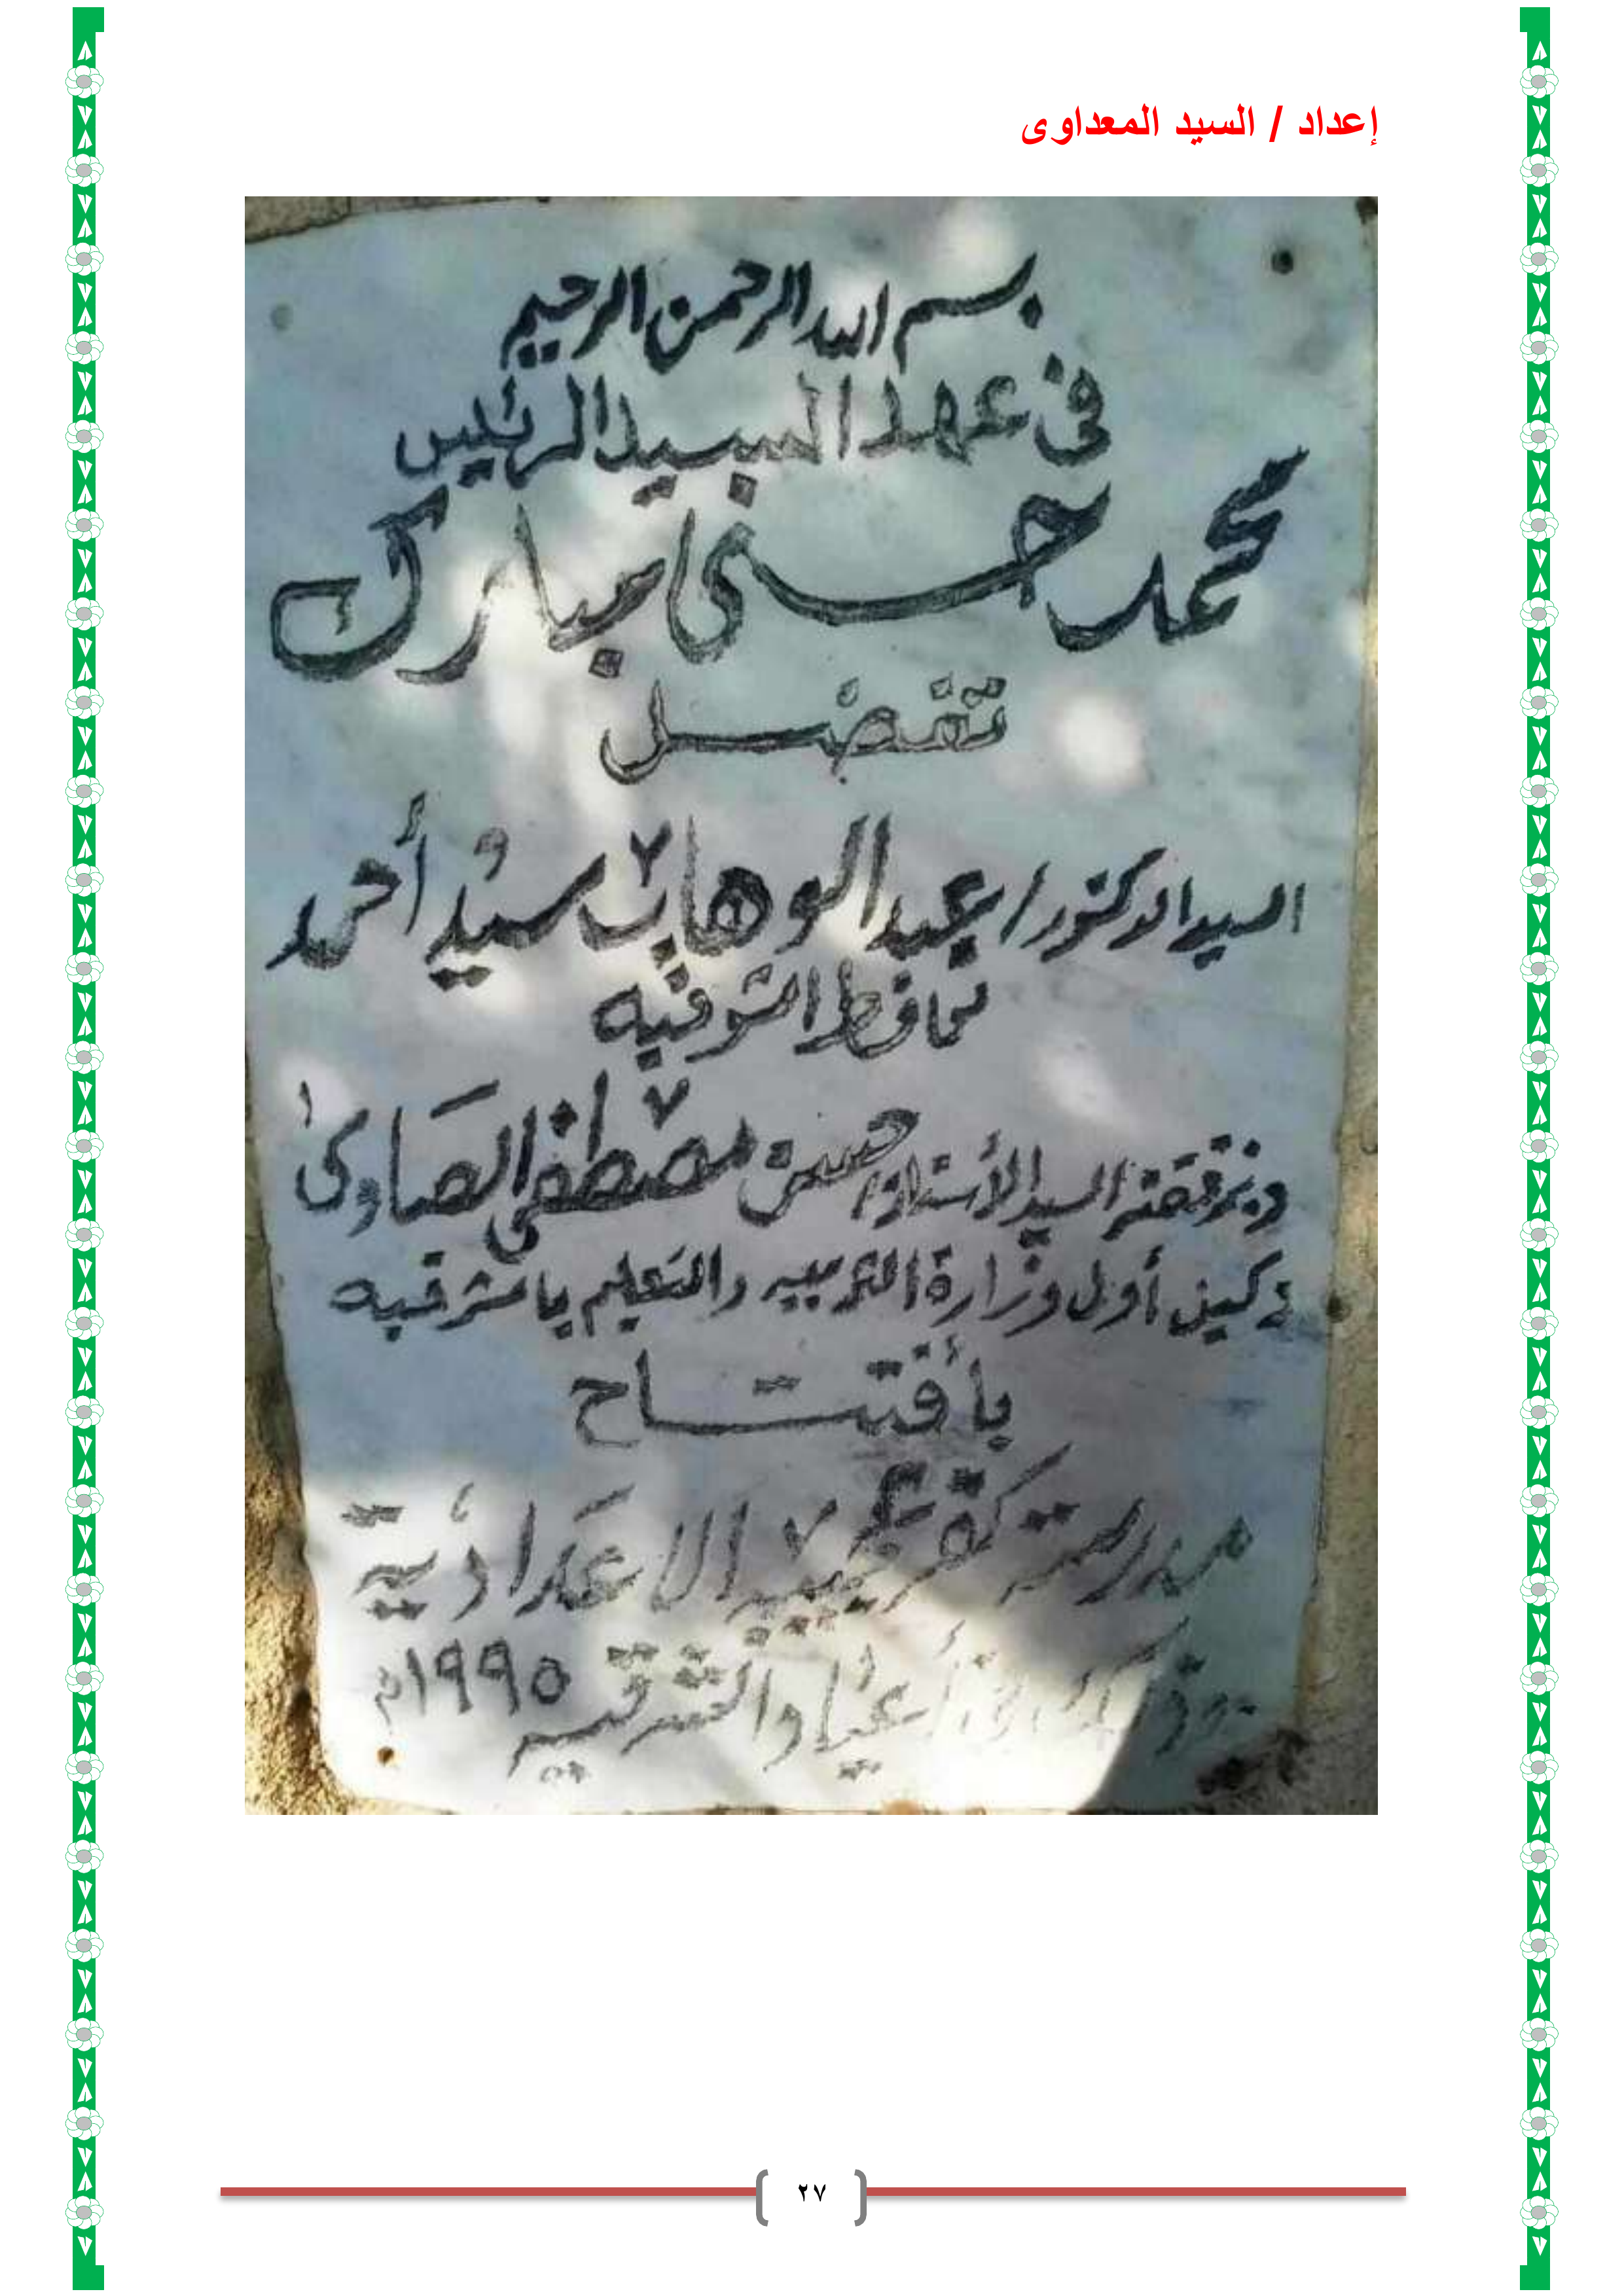 إعداد / السيد المعداوى
بسم الله الرحمن الرحيم
فى عهد السيد الرئيس
محمد حسنى مبارك
تفضل
السيد الدكتور / عبد الوهاب سيد أحمد
محافظ الشرقيه
وبرفقته السيد الأستاذ / حسن مصطفى الصاوى
وكيل أول وزارة التربيه والتعليم بالشرقيه
بأفتتاح
مدرسة كفر الاعدادية
والشرقيه ١٩٩٥م
٢٧